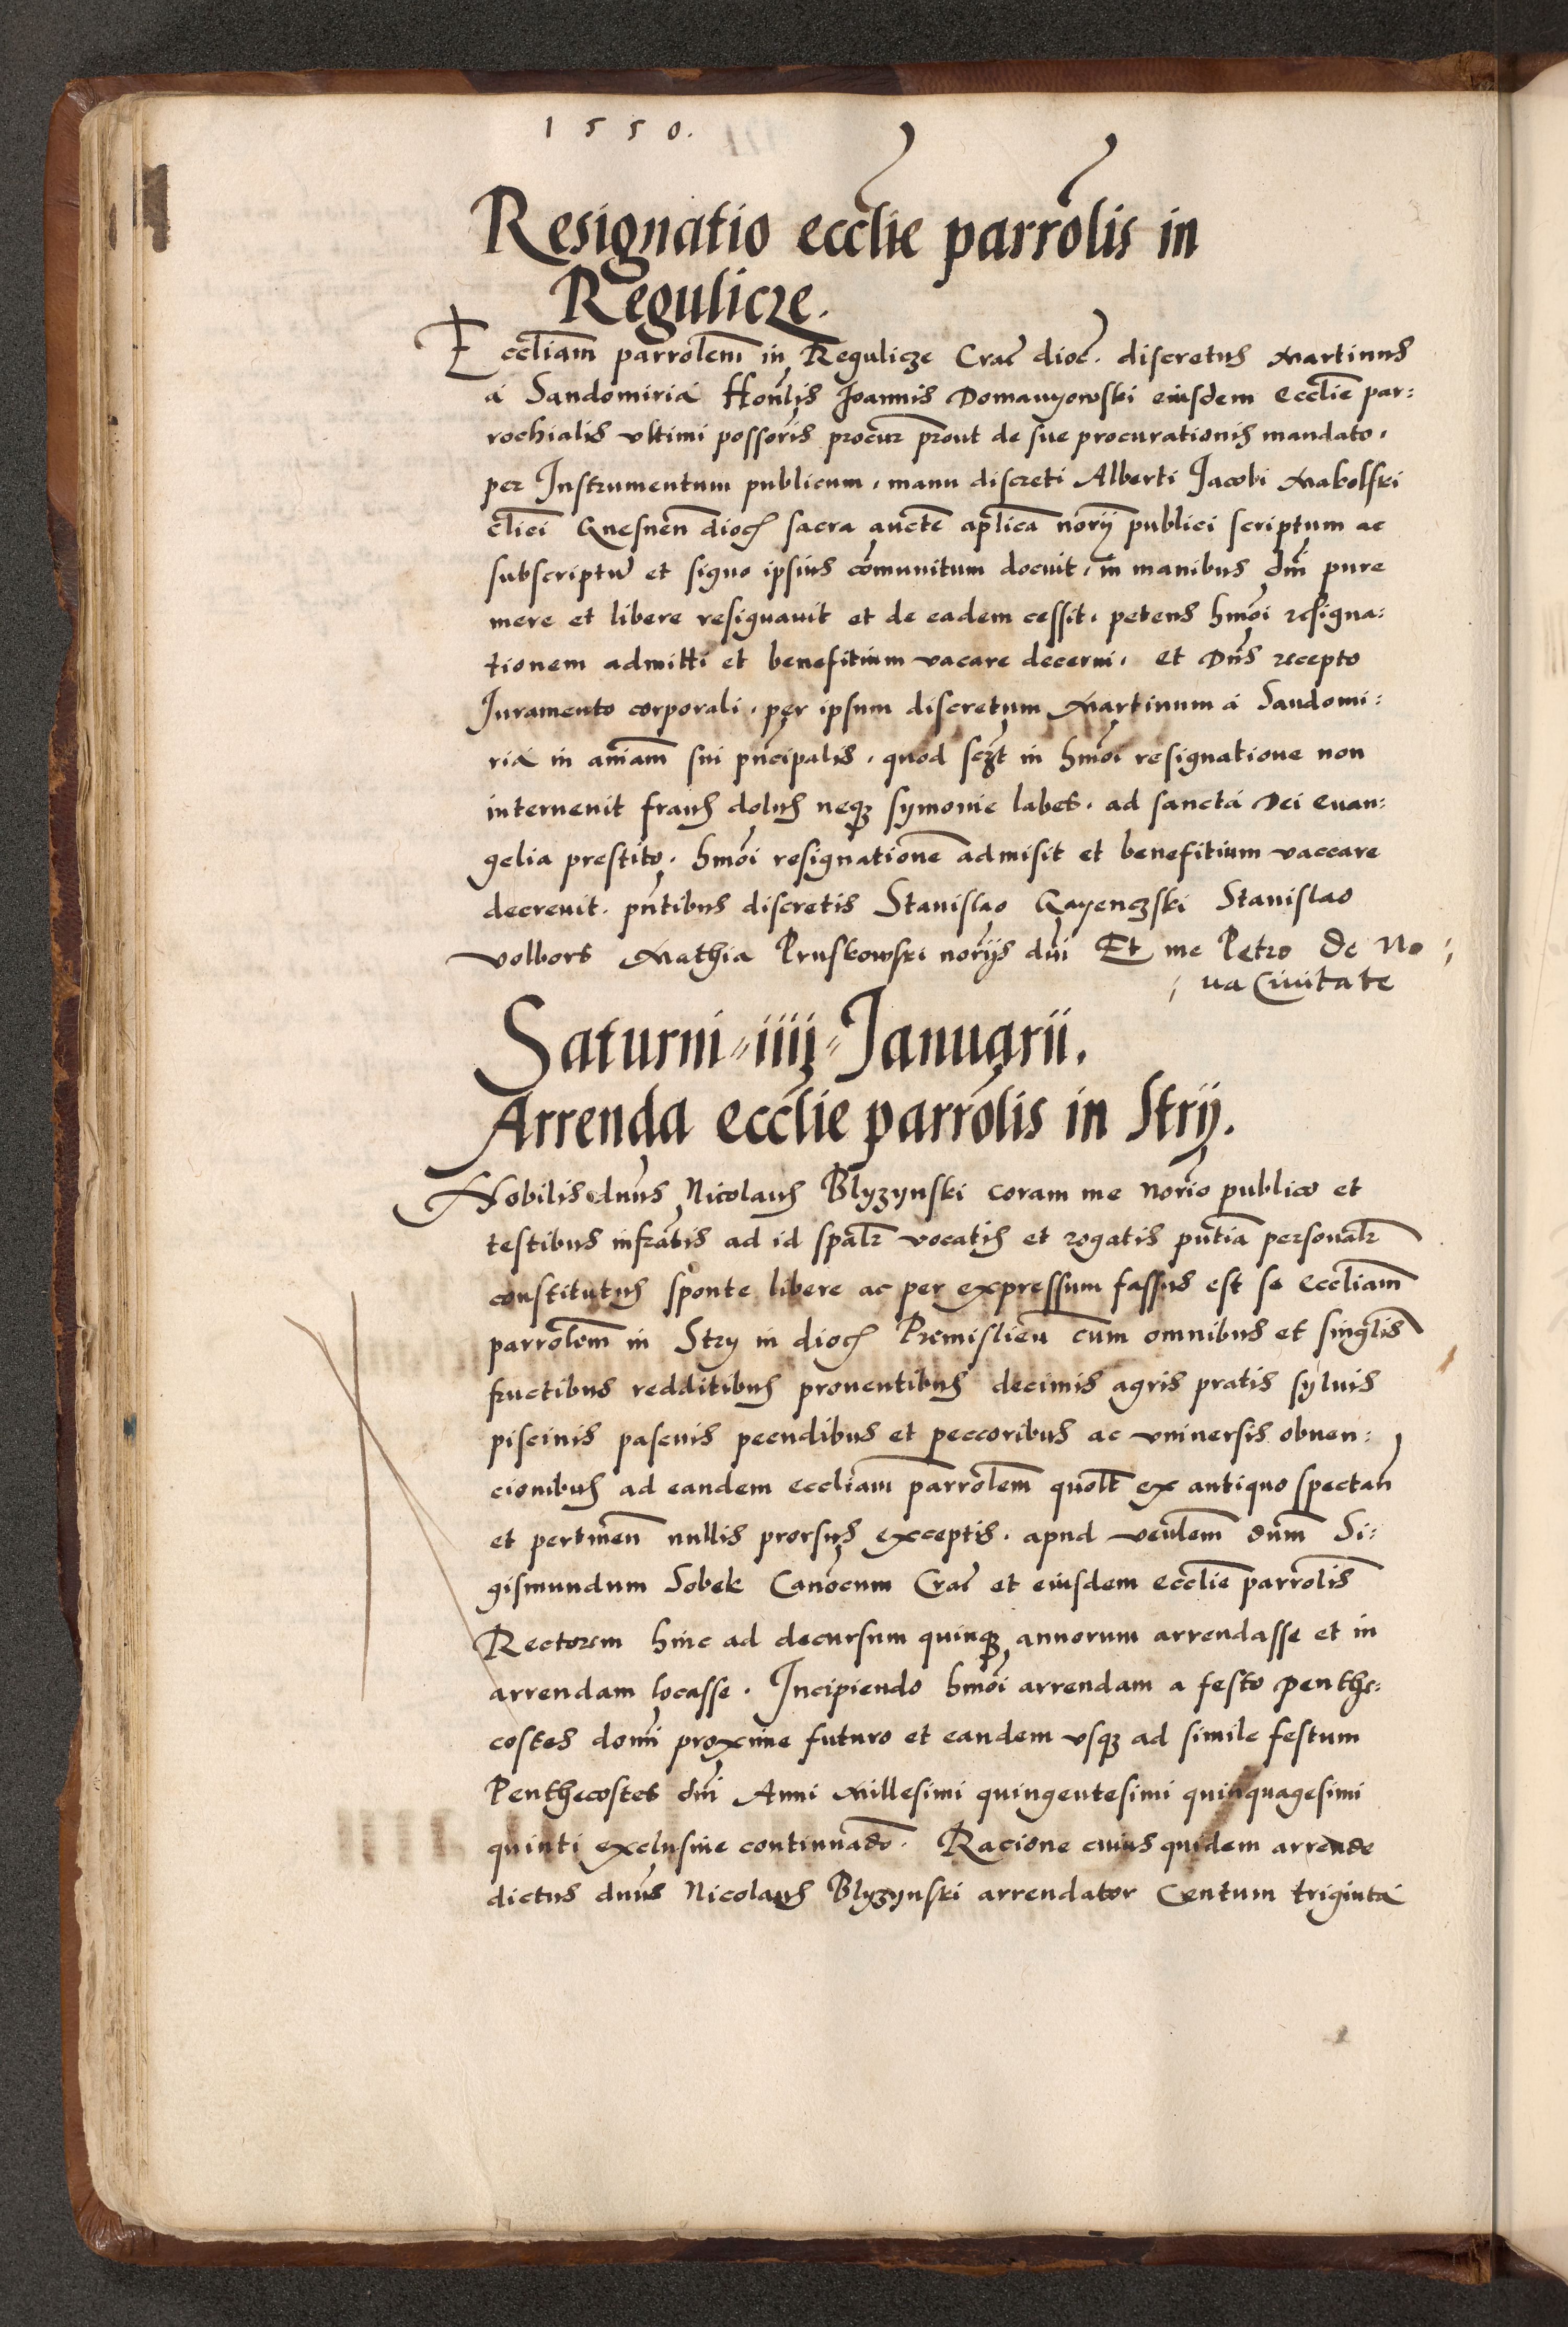 1550.
Resignatio ecclie parrolis in
Regulicze.
Eccliam parrolem in Regulicze Crac dioc. discretus Martinus
á Sandomiriá Honlis Joannis Domanyowski eiusdem Ecclie par:
rochialis vltimi possoris procur prout de sue procurationis mandato,
per Instrumentum publicum, manu discreti Alberti Jacobi Makolski
clici Gnesnen dioc sacra aucte aplica norij publici scriptum ac
subscriptu et signo ipsius comunitum docuit, in manibus dni pure
mere et libere resignauit et de eadem cessit, petens hmoi resigna:
tionem admitti et benefitium vacare decerni, et Dns recepto
Juramento corporali, per ipsum discretum Martinum á Sandomi:
riá in aniam sui pncipalis, quod sczt in hmoi resignatione non
interuenit fraus dolus neqz symonie labes, ad sanctá Dei euan:
gelia prestito, hmoi resignatione admisit et benefitium vaccare
decreuit. pntibus discretis Stanislao Gayenczski Stanislao
volbors Mathia Pruskowski norijs dni Et me Petro de No:
ua Ciuitate
Saturni iiij Januarii.
Arrenda ecclie parrolis in Strij.
Nobilis dnus Nicolaus Blyzynski coram me norio publico et
testibus infratis ad id spalr vocatis et rogatis pntia personalr
constitutus sponte libere ac per expressum fassus est se eccliam
parrolem in Stry in dioc Premislien cum omnibus et singlis
fructibus redditibus prouentibus decimis agris pratis syluis
piscinis pascuis pecudibus et peccoribus ac vniuersis obuen:
cionibus ad eandem eccliam parrolem quolt ex antiquo spectan
et pertinen nullis prorsus exceptis, apud venlem dum Si:
gismundum Sobek Canocum Crac et eiusdem ecclie parrolis
Rectorem hinc ad decursum quinqz annorum arrendasse et in
arrendam locasse. Incipiendo hmoi arrendam a festo penthe:
costes domi proxime futuro et eandem vsqz ad simile festum
Penthecostes dni Anni Millesimi quingentesimi quinquagesimi
quinti exclusiue continuado. Racione cuius quidem arrende
dictus dnus Nicolaus Blyzynski arrendator Centum trigintá